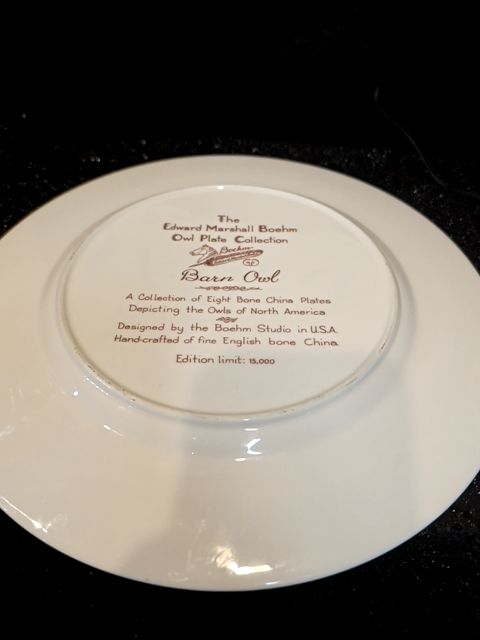 The
Edward Marshall Boehm
Owl Plate Collection
Boehm
Barn Owl
A Collection of Eight Bone China Plates
Depicting the Owls of North America
Designed by the Boehm Studio in U.S.A.
Hand-crafted of fine English bone China.
Edition limit: 15,000